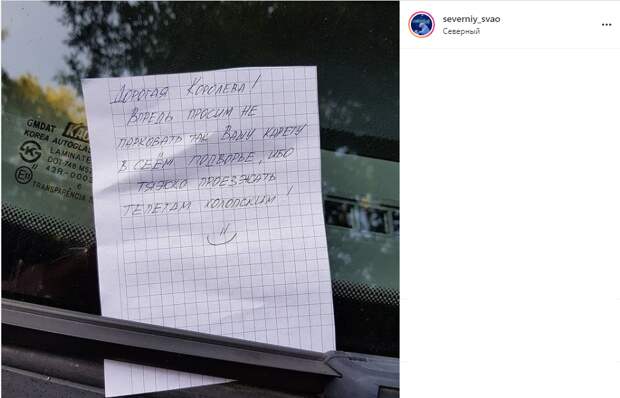 severniy_svao
Северный
Дорогая Королева!
Впредь просим не
парковать так Вашу карету
в сеём подворье, ибо
тяжко проезжать
телегам холопским!
GMDAT
KOREA AUTOGLASS
LAMINATED
TRANSPARÊNCIA